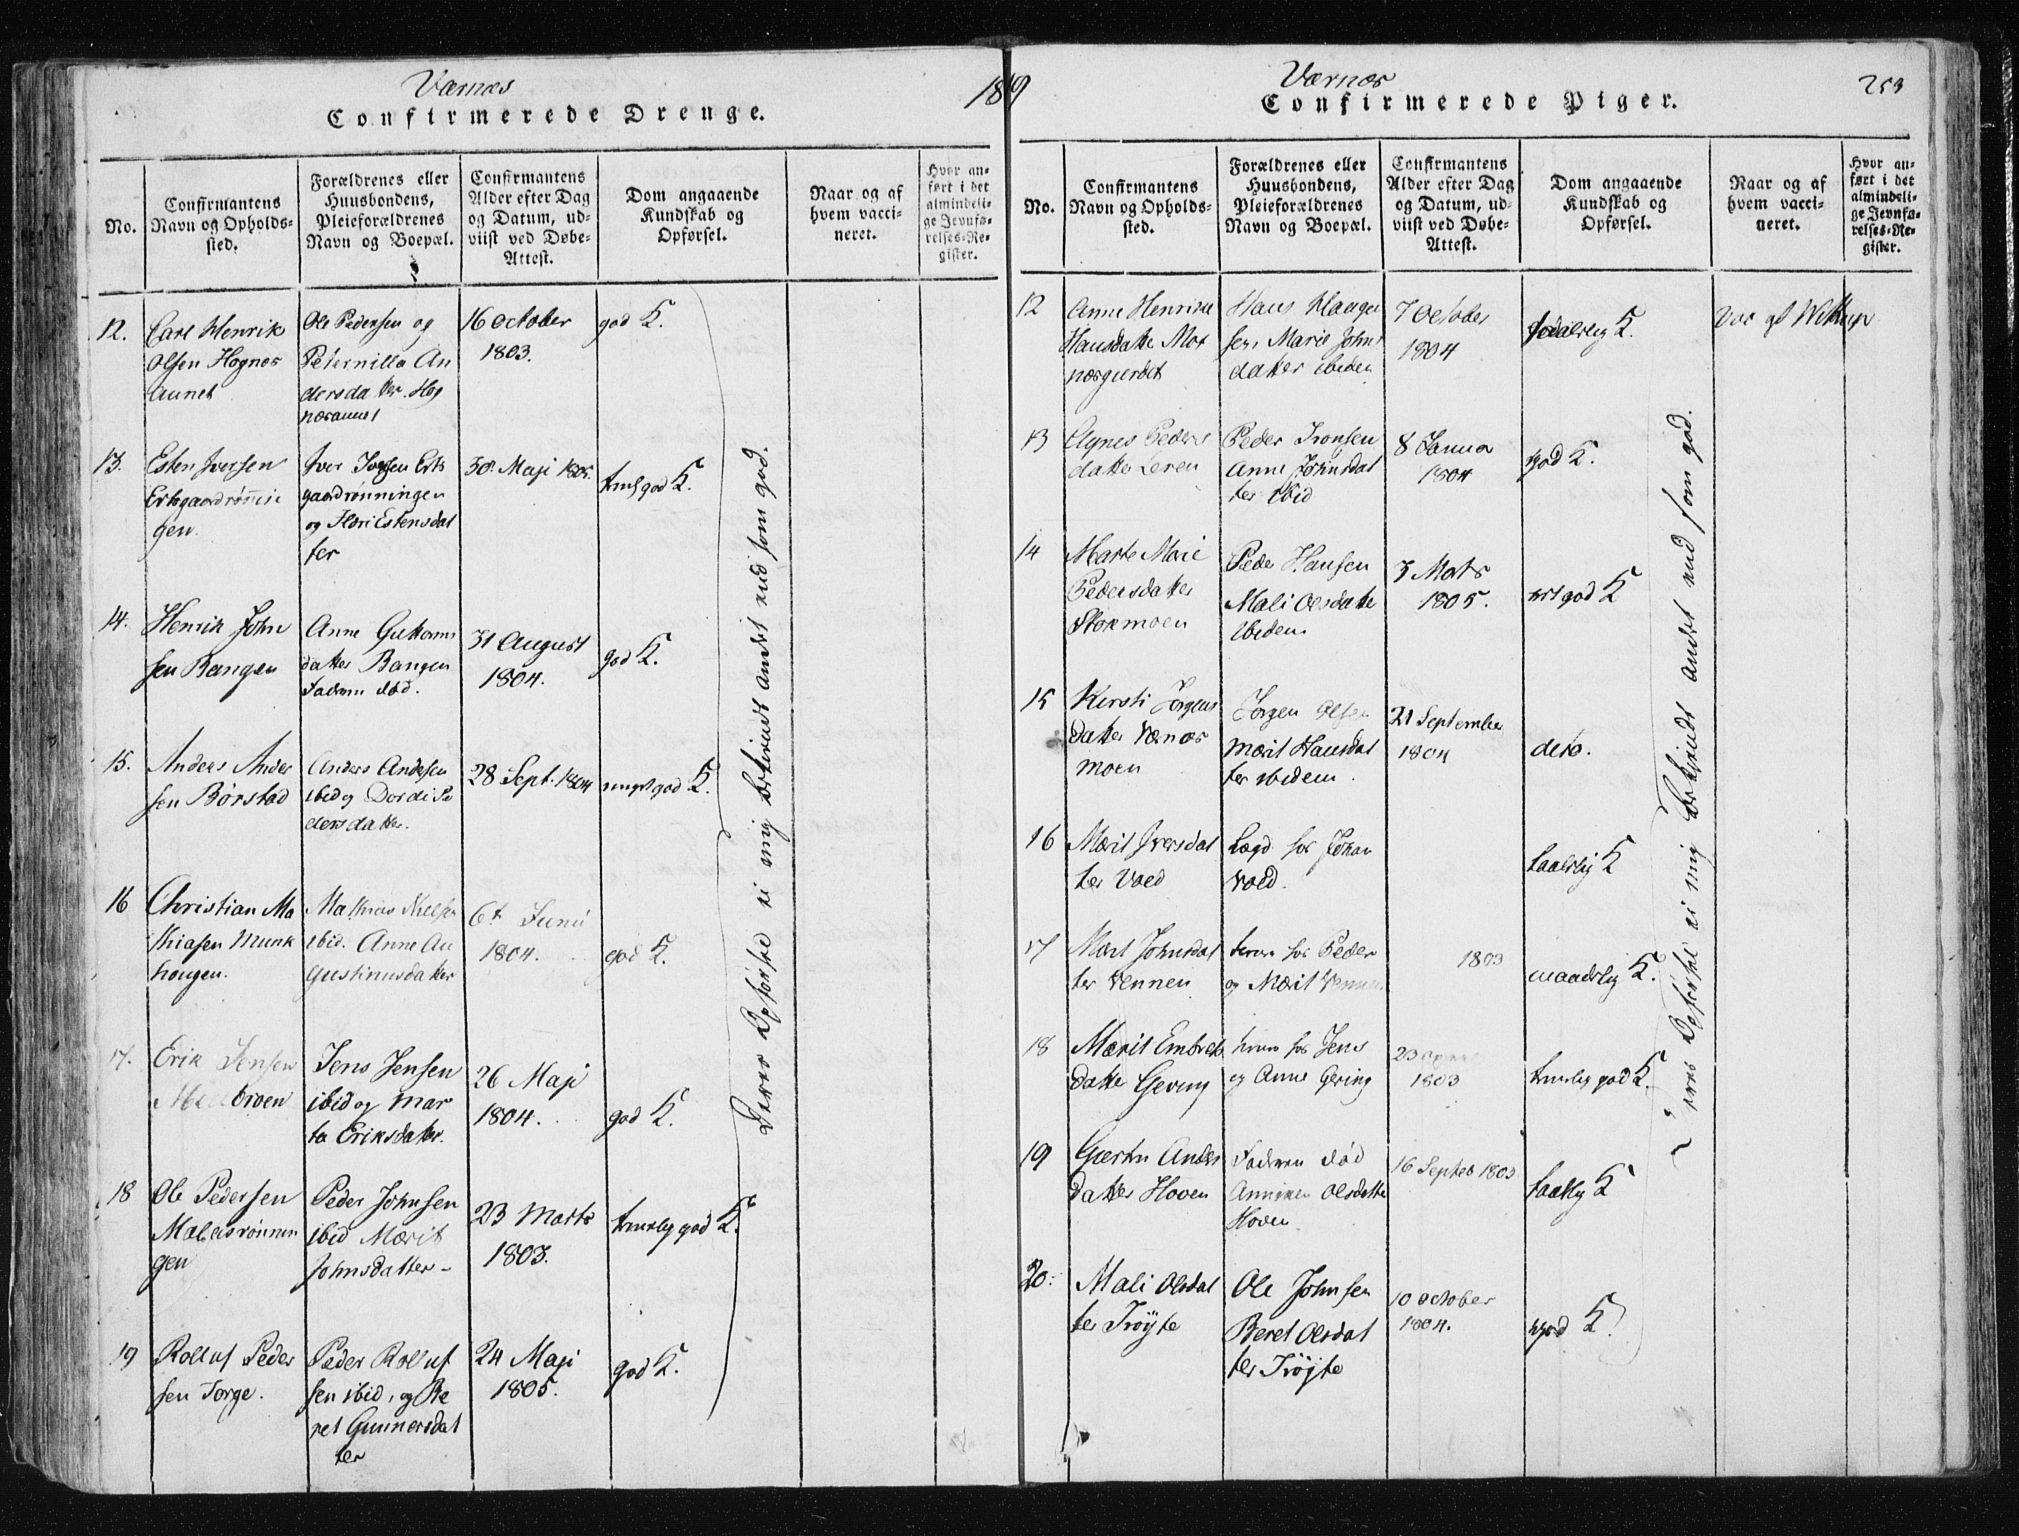 Værnes
1819
Confirmerede Drenge.
No.
Confirmantens
Navn og Opholds-
sted.
Forældrenes eller
Huusbondens,
Pleieforældrenes
Navn og Boepæl.
Confirmantens
Alder efter Dag
og Datum, ud-
viist ved Døbe-
Attest.
Dom angaaende
Kundskab og
Opførsel.
Naar og af
hvem vacci-
neret.
Hvor an-
ført i det
almindeli-
ge Jevnfø-
relses-Re-
gister.
12.
Carl Henrik
Olsen Hognes
aunet
Ole Pedersen og
Peternilla An
dersdatter Hog
næsaunet
16 October
1803.
god K.
13.
Esten Iversen
gen
Iver
gaardrønningen
og Estensdat
ter
30 Maji 1805.
god K.
14.
Henrik John
sen Bangen
Anne Guttorms
datter Bangen
Faderen død.
31 August
1804.
god K.
15.
Anders Ander
sen Børstad
Anders Andersen
ibid og Dordi Pe
dersdatter.
28 Sept. 1804
god K.
16
Christian Ma
thiasen Munk
hougen.
Mathias Nielsen
ibid. Anne Au
gustinusdatter
6t Junii
1804.
god K.
17.
Erik Jensen
Jens Jensen
ibid og Mar
ta Eriksdatter.
26 Maji
1804.
god K.
18
Ole Pedersen
gen
Peder Johnsen
ibid Marit
Johnsdatter
23 Marts
1803.
temmelig god K.
19
Rolluf Peder
sen Torge.
Peder Rolluf
sen ibid, og Be
ret Gunnersdat
ter
24 Maji
1805.
god K.
Deres Opførsel ei mig bekiendt andet end som god.
Værnes
253
Confirmerede Piger.
No.
Confirmantens
Navn og Opholds-
sted.
Forældrenes eller
Huusbondens,
Pleieforældrenes
Navn og Boepæl.
Confirmantens
Alder efter Dag
og Datum, ud-
viist ved Døbe-
Attest.
Dom angaaende
Kundskab og
Opførsel.
Naar og af
hvem vacci-
neret.
Hvor an-
ført i det
almindeli-
ge Jevnfø-
relses-Re-
gister.
12
Anne Henrike
Hansdatter
Hans
sen, Marie Johns
datter ibidem
7 October
1804
K.
Vac af
13
Agnes Peders
datter Leren
Peder Ironsen
Anne Johnsdat
ter ibid
8 Januar
1804
god K.
14
Marte Marie
Pedersdatter
Stokmoen
Peder Hansen
Mali Olsdatter
ibidem
3 Marts
1805.
god K
15
Kirsti Jørgens
datter Værnæs
moen
Jørgen Olsen
Marit Hansdat
ter ibidem.
21 September
1804
dito.
16
Marit Iversdat
ter Voed
Lægd hos Johan
Voed.
taalelig K
17
Marit Johnsdat
ter Vennen
tiener hos Peder
og Marit Vennen
1803
maadelig K.
18
Marit Embrets
datter Geving
hos Jens
og Anne Gering
23 April
1803
temmelig god K.
19
Anders
datter Hoven
Faderen død
Anniken Olsdatter
Hoven
16 Septeb 1803
K
20.
Mali Olsdat
ter Trøyte
Ole Johnsen
Beret Olsdat
ter Trøjte
10 October
1804.
god K.
Deres Opførsel ei mig bekiendt andet end som god.